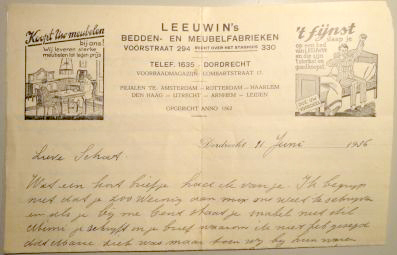 LEEUWIN's
BEDDEN- EN MEUBELFABRIEKEN
VOORSTRAAT 294 RECHT OVER HET STADHUIS 330
TELEF. 1635 - DORDRECHT
VOORRAADMAGAZIJN LOMBARTSTRAAT 17
FILIALEN TE: AMSTERDAM — ROTTERDAM — HAARLEM
DEN HAAG — UTRECHT — ARNHEM — LEIDEN
OPGERICHT ANNO 1862
Koopt Uw meubelen
bij ons!
Wij leveren sterke
meubelen tot lagen prijs
't fijnst
slaap je
op een bed
van LEEUWIN
en die zijn
't sterkst en
goedkoopst
Dordrecht, 11 Juni 1936
Lieve Schat
Wat een kort briefje had ik van je. Ik begrijp
niet dat je zoo weinig van ons weet te schrijven
en als je bij me bent staat je snabel niet stil
je schrijft in je brief waarom ik niet heb gezegd
dat was maar toen wij bij hun waren